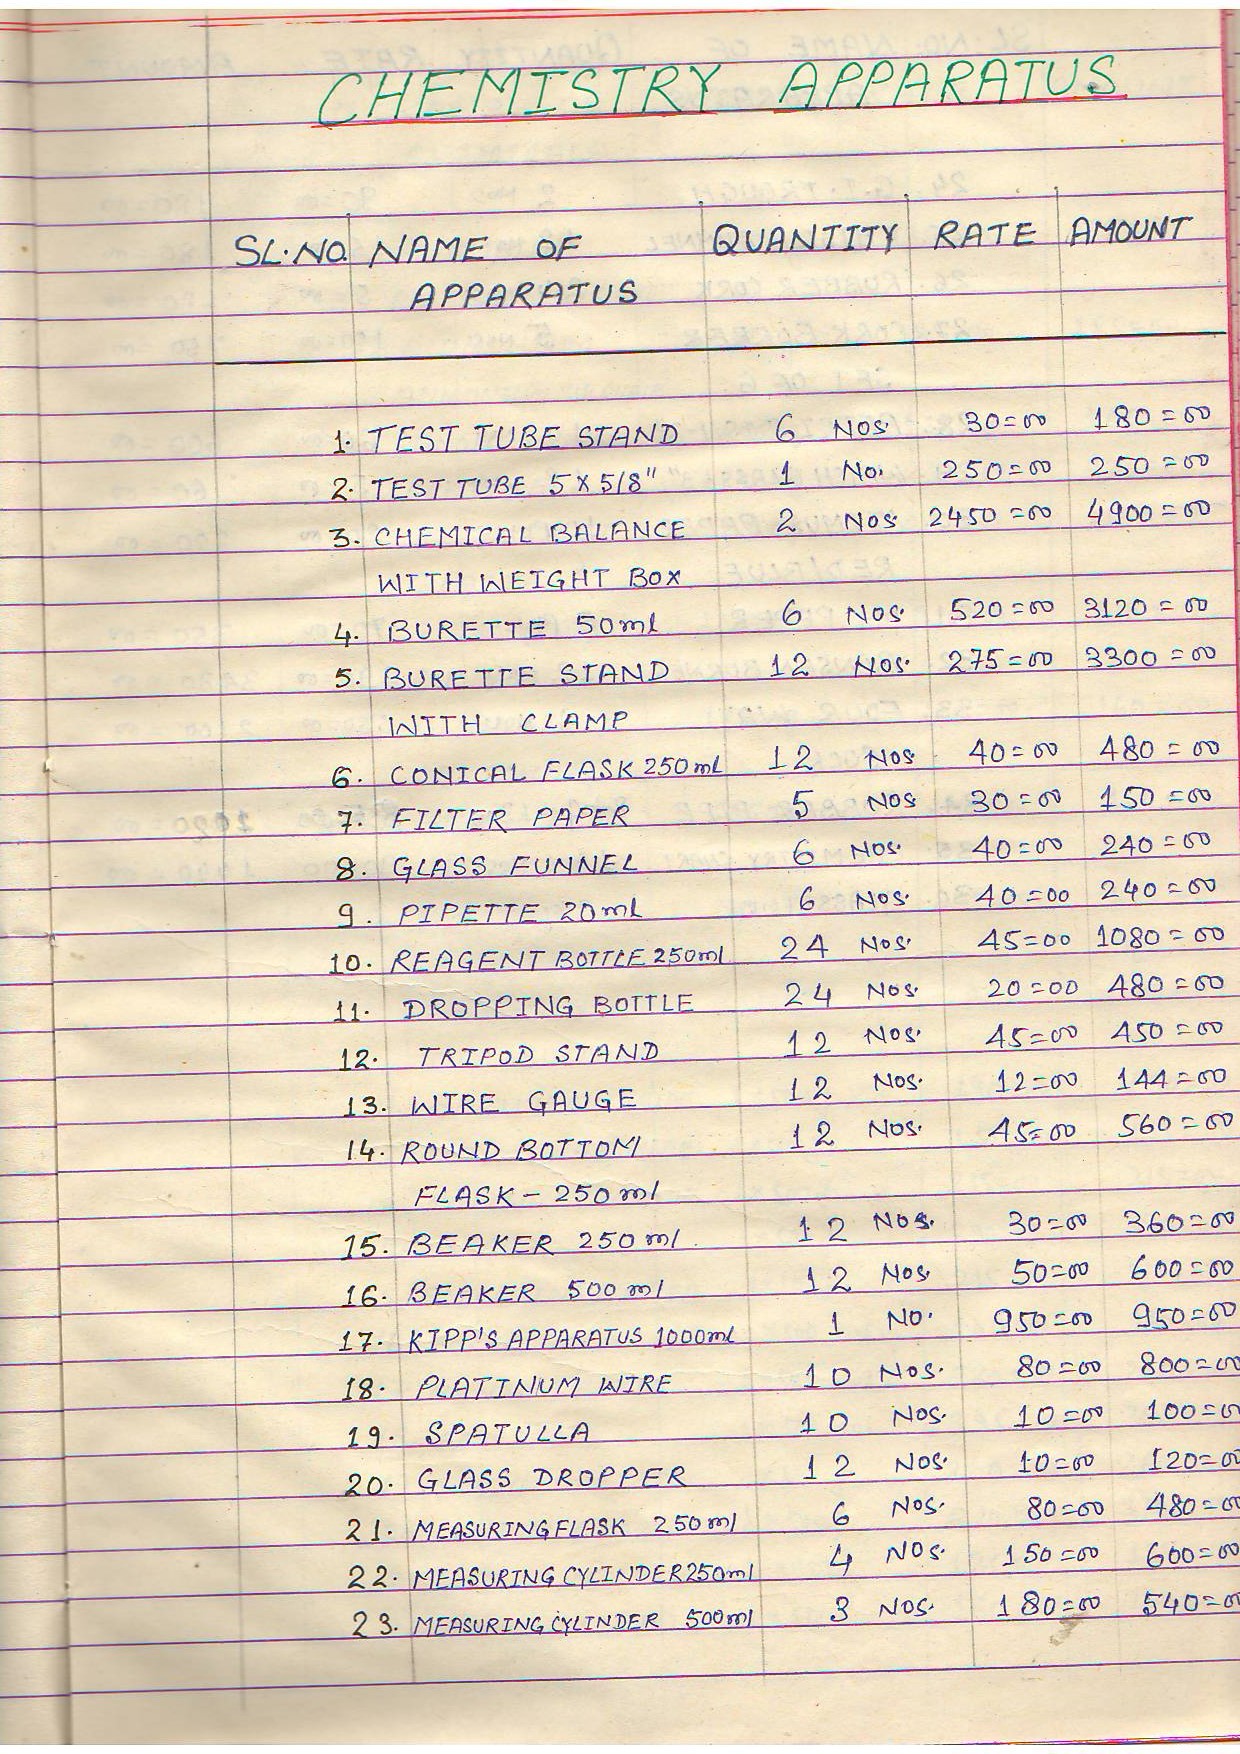 CHEMISTRY APPARATUS
SL.NO. NAME OF QUANTITY RATE AMOUNT
APPARATUS
1. TEST TUBE STAND 6 NOS. 30=00 180=00
2. TEST TUBE 5X5/8" 1 NO. 250=00 250=00
3. CHEMICAL BALANCE 2 NOS 2450=00 4900=00
WITH WEIGHT BOX
4. BURETTE 50ml 6 NOS. 520=00 3120=00
5. BURETTE STAND 12 NOS. 275=00 3300=00
WITH CLAMP
6. CONICAL FLASK 250ml 12 NOS 40=00 480=00
7. FILTER PAPER 5 NOS 30=00 150=00
8. GLASS FUNNEL 6 NOS. 40=00 240=00
9. PIPETTE 20ml 6 NOS. 40=00 240=00
10. REAGENT BOTTLE 250ml 24 NOS. 45=00 1080=00
11. DROPPING BOTTLE 24 NOS. 20=00 480=00
12. TRIPOD STAND 12 NOS. 45=00 450=00
13. WIRE GAUGE 12 NOS. 12=00 144=00
14. ROUND BOTTOM 12 NOS. 45=00 560=00
FLASK - 250ml
15. BEAKER 250ml. 12 NOS. 30=00 360=00
16. BEAKER 500ml 12 NOS. 50=00 600=00
17. KIPP'S APPARATUS 1000ml 1 NO. 950=00 950=00
18. PLATINUM WIRE 10 NOS. 80=00 800=00
19. SPATULLA 10 NOS. 10=00 100=00
20. GLASS DROPPER 12 NOS. 10=00 120=00
21. MEASURING FLASK 250ml 6 NOS. 80=00 480=00
22. MEASURING CYLINDER 250ml 4 NOS. 150=00 600=00
23. MEASURING CYLINDER 500ml 3 NOS. 180=00 540=00